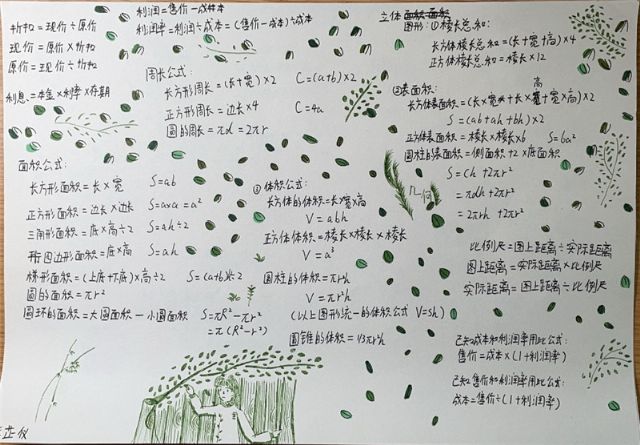 折扣=现价÷原价
现价=原价×折扣
原价=现价÷折扣
利息=本金×利率×存期
利润=售价-成本
利润率=利润÷成本=(售价-成本)÷成本
周长公式:
长方形周长=(长+宽)×2 C=(a+b)×2
正方形周长=边长×4 C=4a
圆的周长=πd=2πr
面积公式:
长方形面积=长×宽 S=ab
正方形面积=边长×边长 S=a×a=a²
三角形面积=底×高÷2 S=ah÷2
平行四边形面积=底×高 S=ah
梯形面积=(上底+下底)×高÷2 S=(a+b)h÷2
圆的面积=πr²
圆环的面积=大圆面积-小圆面积 S=πR²-πr²
=π(R²-r²)
③体积公式:
长方体的体积=长×宽×高
V=abh
正方体体积=棱长×棱长×棱长
V=a³
圆柱的体积=πr²h
V=πr²h
(以上图形统一的体积公式 V=sh)
圆锥的体积=1/3πr²h
立体
图形:①棱长总和:
长方体棱长总和=(长+宽+高)×4
正方体棱长总和=棱长×12
②表面积:
长方体表面积=(长×宽+长×高+宽×高)×2
S=(ab+ah+bh)×2
正方体表面积=棱长×棱长×6 S=6a²
圆柱的表面积=侧面积+2×底面积
S=Ch+2πr²
=πdh+2πr²
=2πrh+2πr²
几何
比例尺=图上距离÷实际距离
图上距离=实际距离×比例尺
实际距离=图上距离÷比例尺
已知成本和利润率用此公式:
售价=成本×(1+利润率)
已知售价和利润率用此公式:
成本=售价÷(1+利润率)